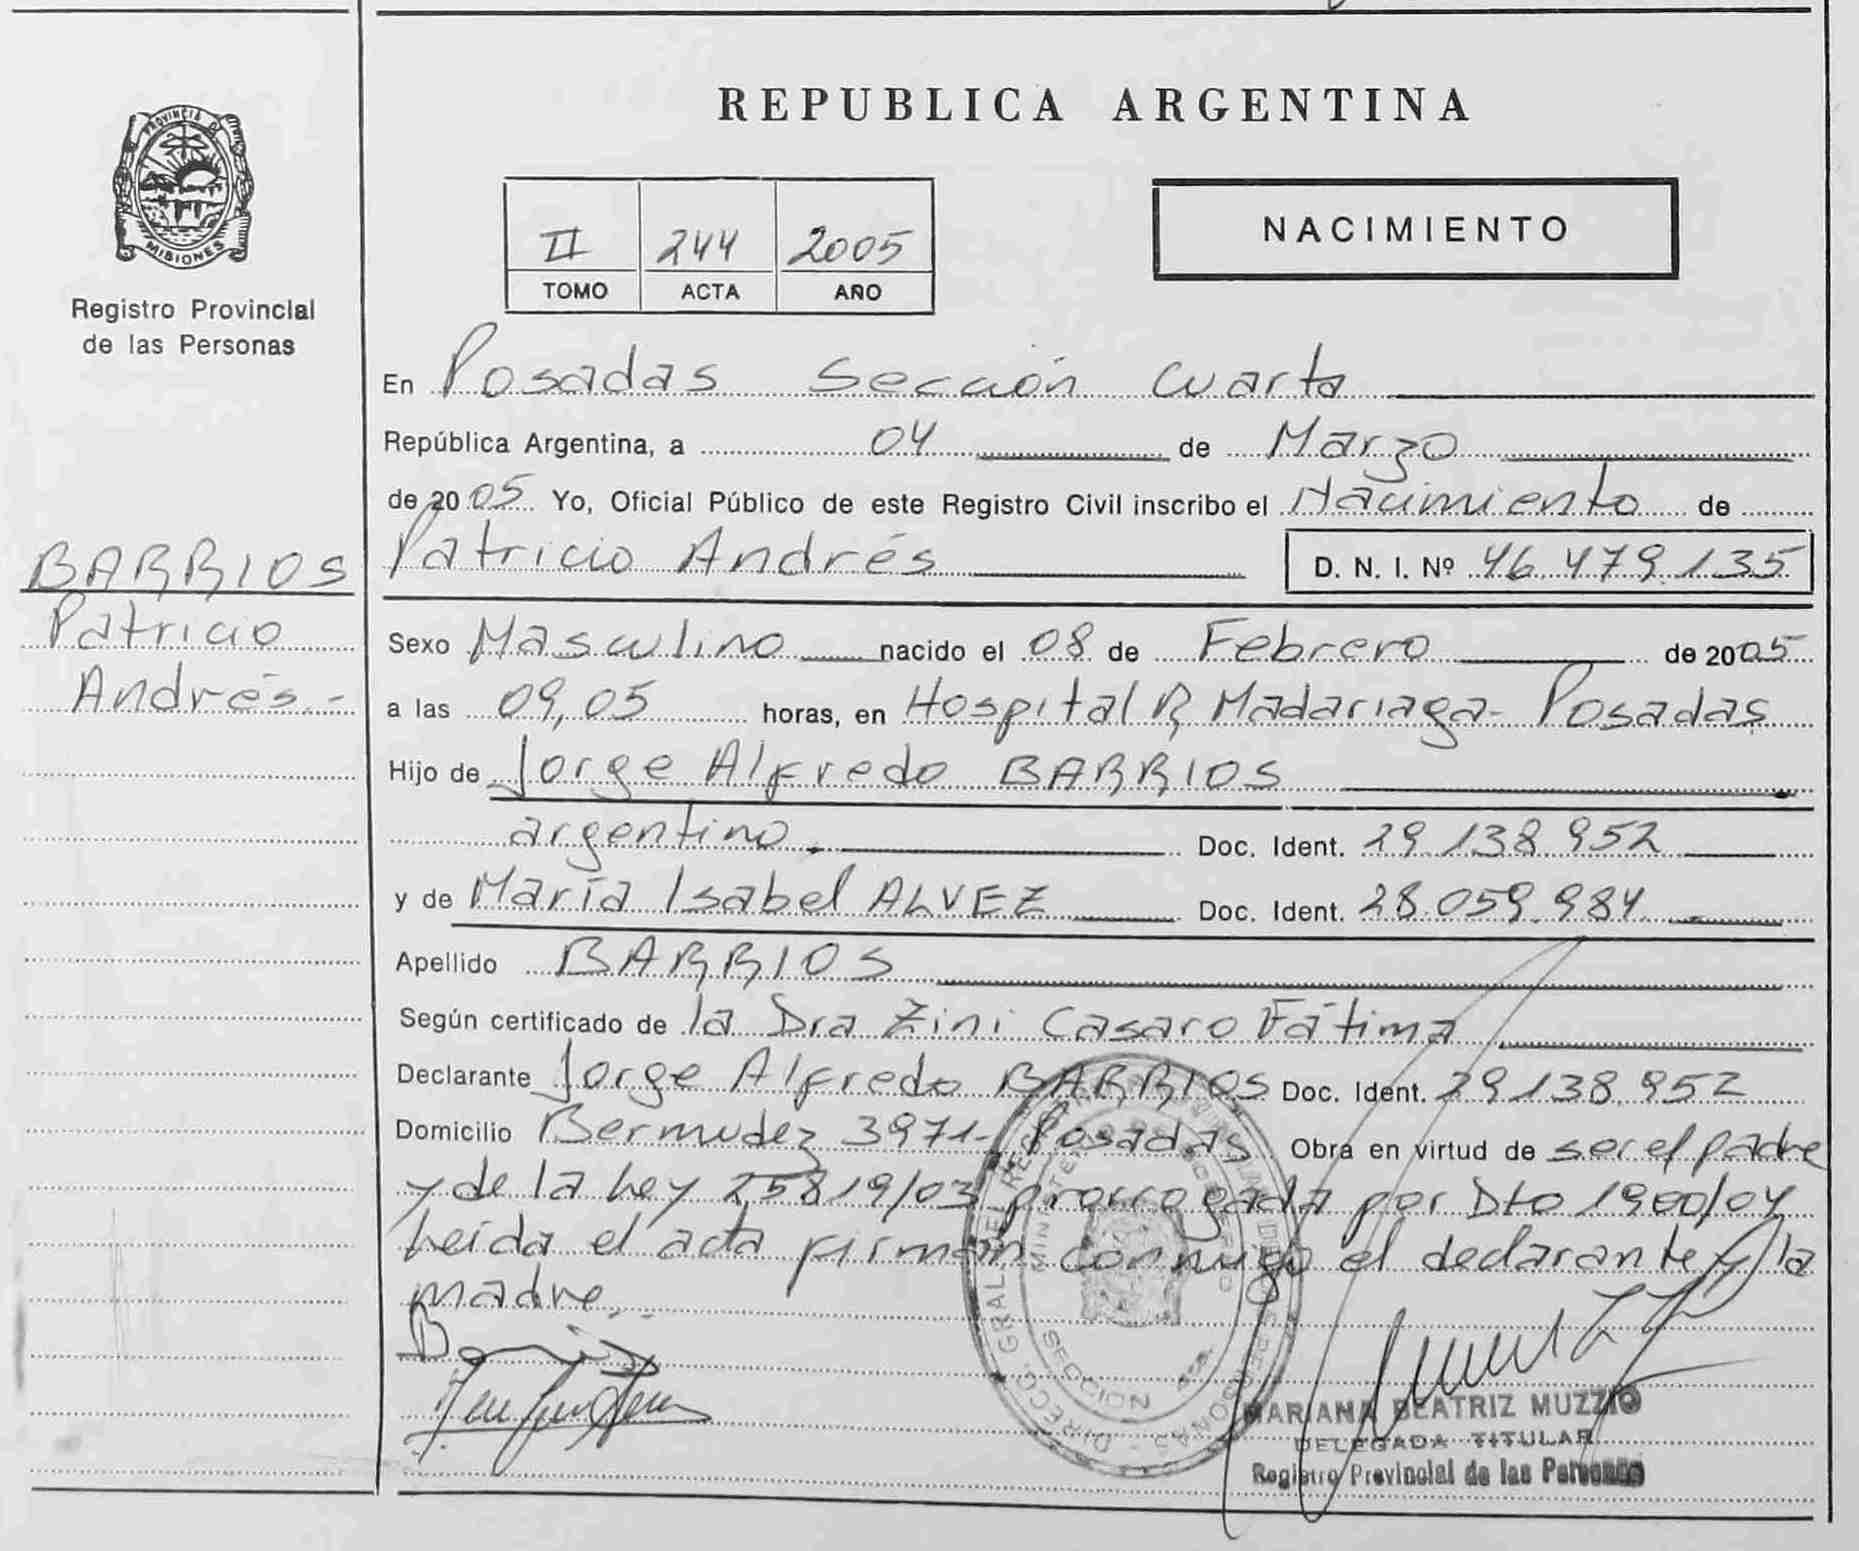 PROVINCIA D
MISIONES
Registro Provincial
de las Personas
BARRIOS
Patricio
Andrés.-
REPUBLICA ARGENTINA
II 244 2005
TOMO ACTA AÑO
NACIMIENTO
En Posadas Sección Cuarta
República Argentina, a 04 de Marzo
de 2005 Yo, Oficial Público de este Registro Civil inscribo el Nacimiento de
Patricio Andrés D. N. I. Nº 46.479.135
Sexo Masculino nacido el 08 de Febrero de 2005
a las 09,05 horas, en Hospital R. Madariaga- Posadas
Hijo de Jorge Alfredo BARRIOS
argentino. Doc. Ident. 29.138.952
y de María Isabel ALVEZ Doc. Ident. 28.059.984
Apellido BARRIOS
Según certificado de la Dra Zini Casaro Fátima
Declarante Jorge Alfredo BARRIOS Doc. Ident. 29.138.952
Domicilio Bermudez 3971- Posadas Obra en virtud de ser el padre
y de la Ley 25819/03 prorrogada por Dto 1900/04
Leída el acta firman conmigo el declarante y la
madre.-
MARIANA BEATRIZ MUZZIO
DELEGADA TITULAR
Registro Provincial de las Personas